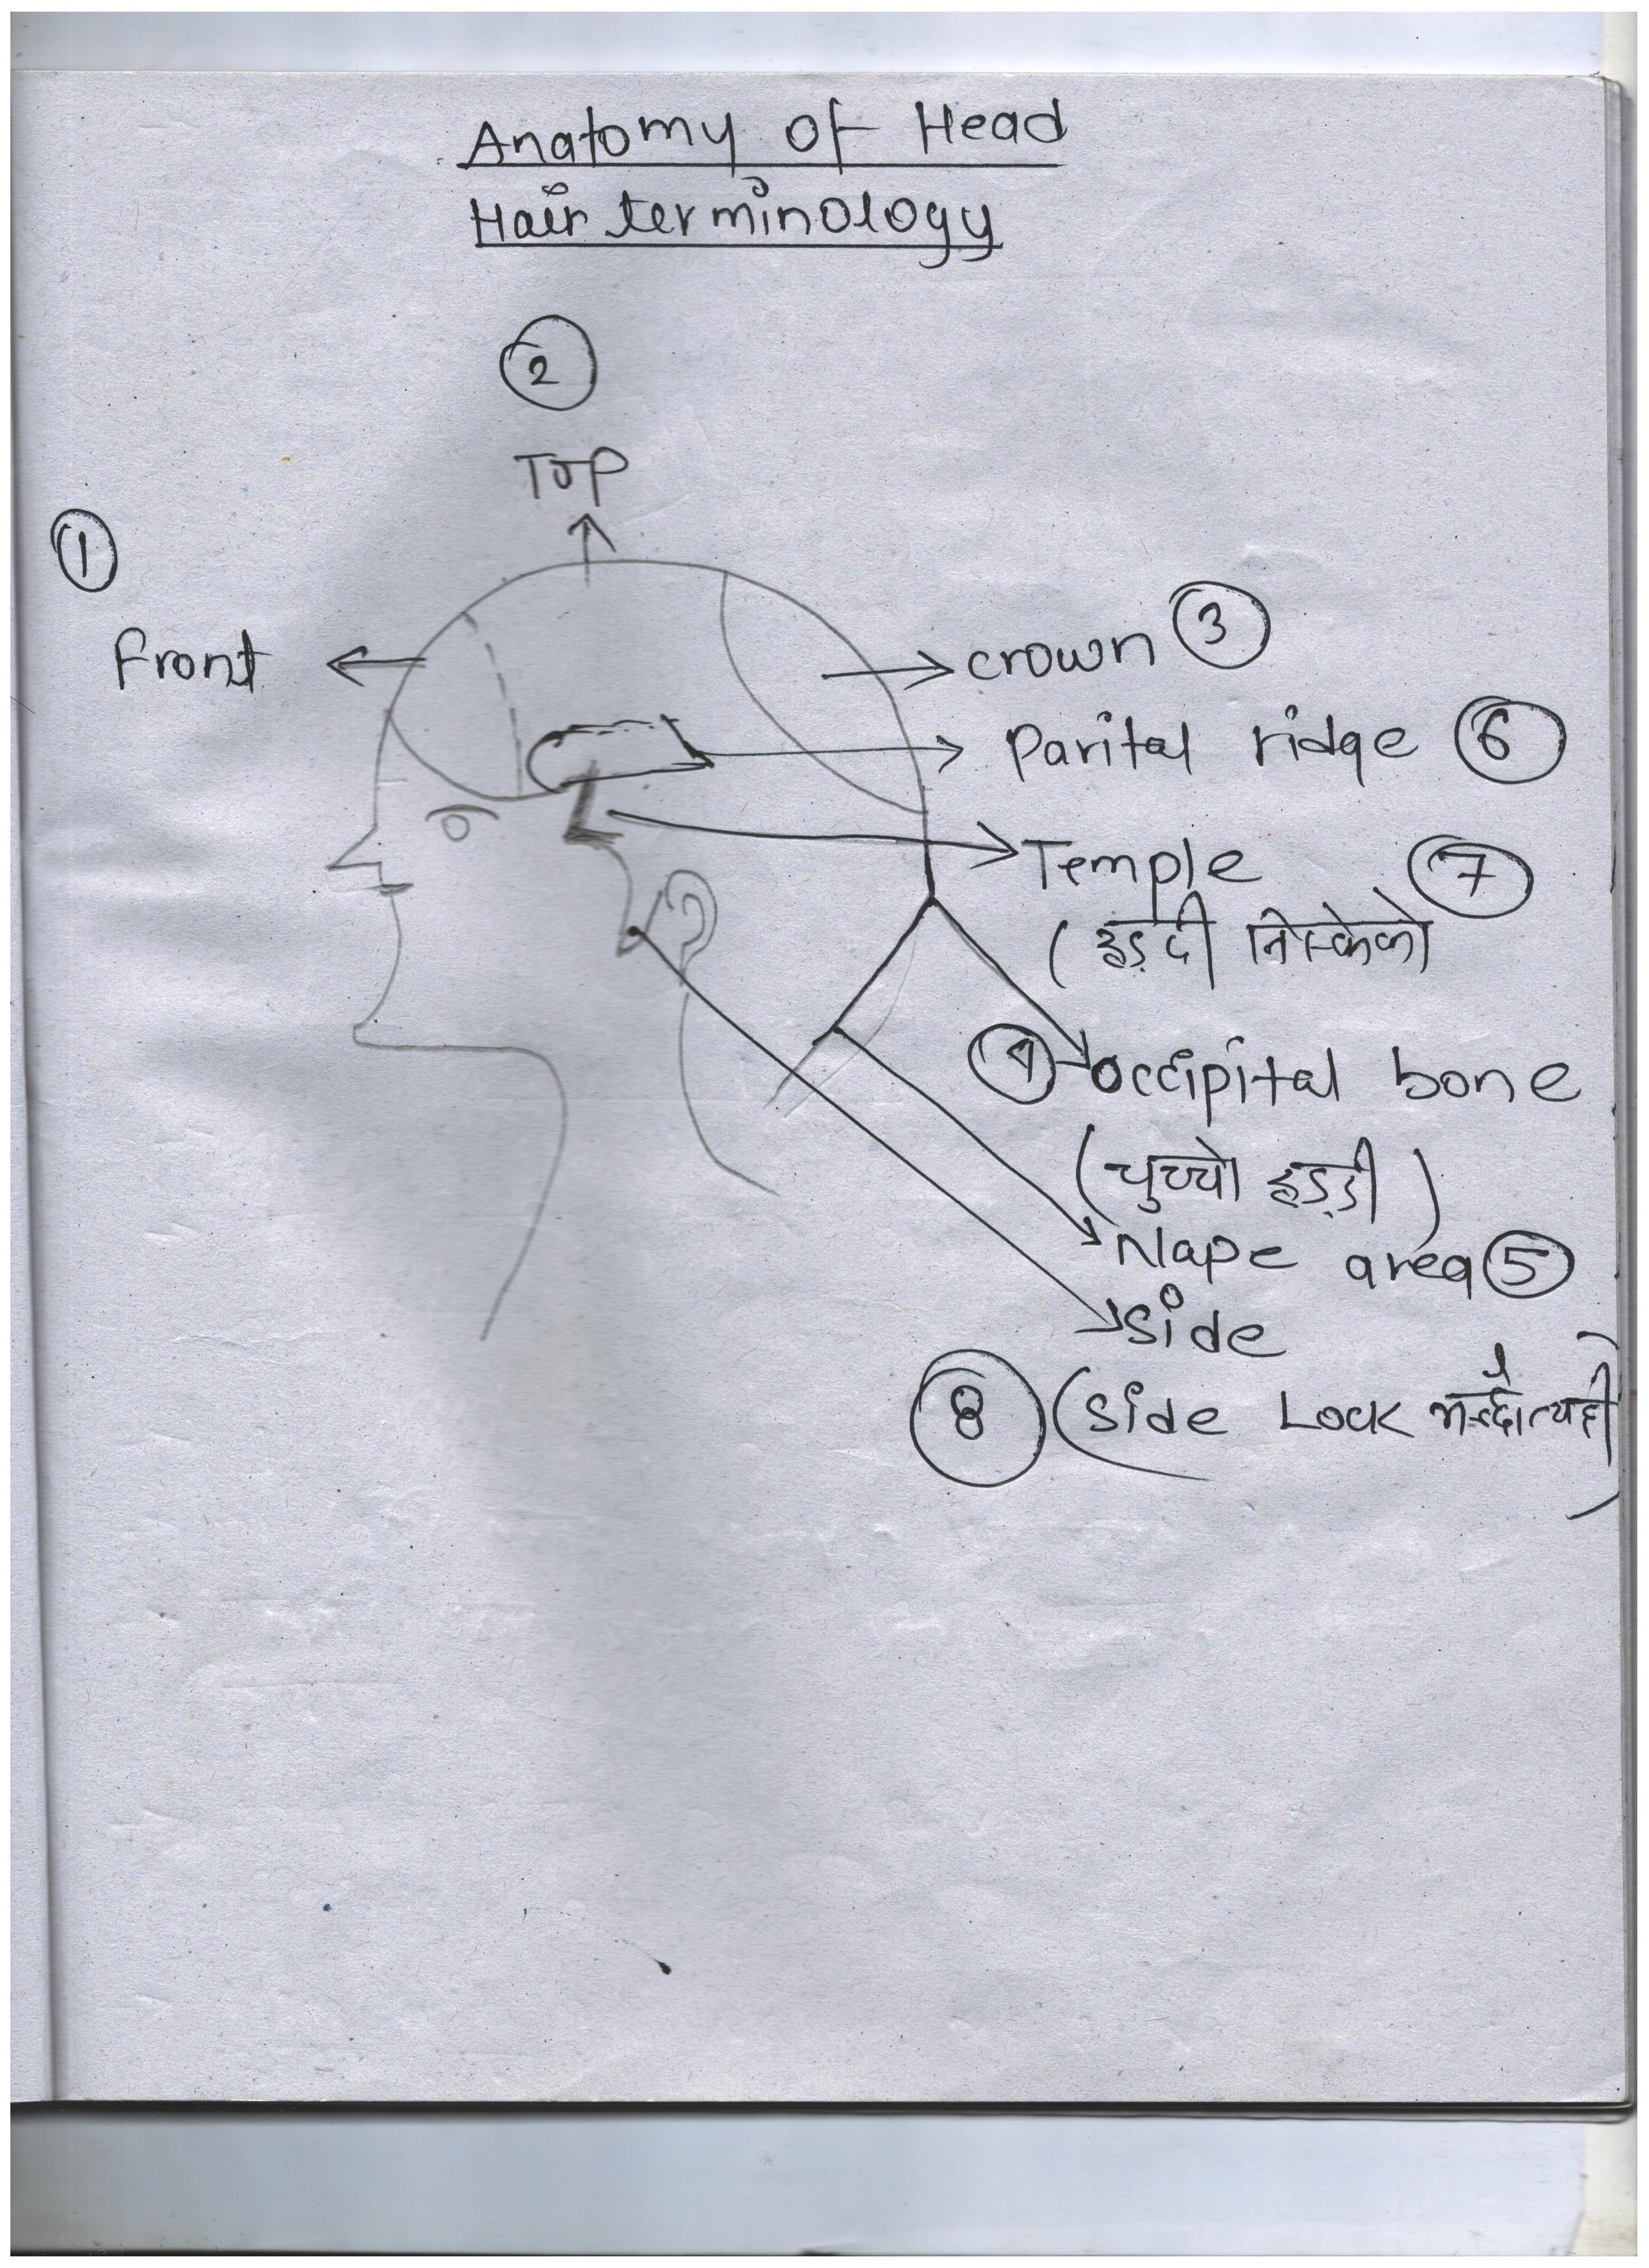 Anatomy of Head
Hair terminology
2
TOP
1
Front
crown 3
Parital ridge 6
Temple 7
(हड्दी निस्केको
4 occipital bone
(चुच्चो हड्डी)
Nape area 5
side
8 (side Lock भन्दा त्यही)